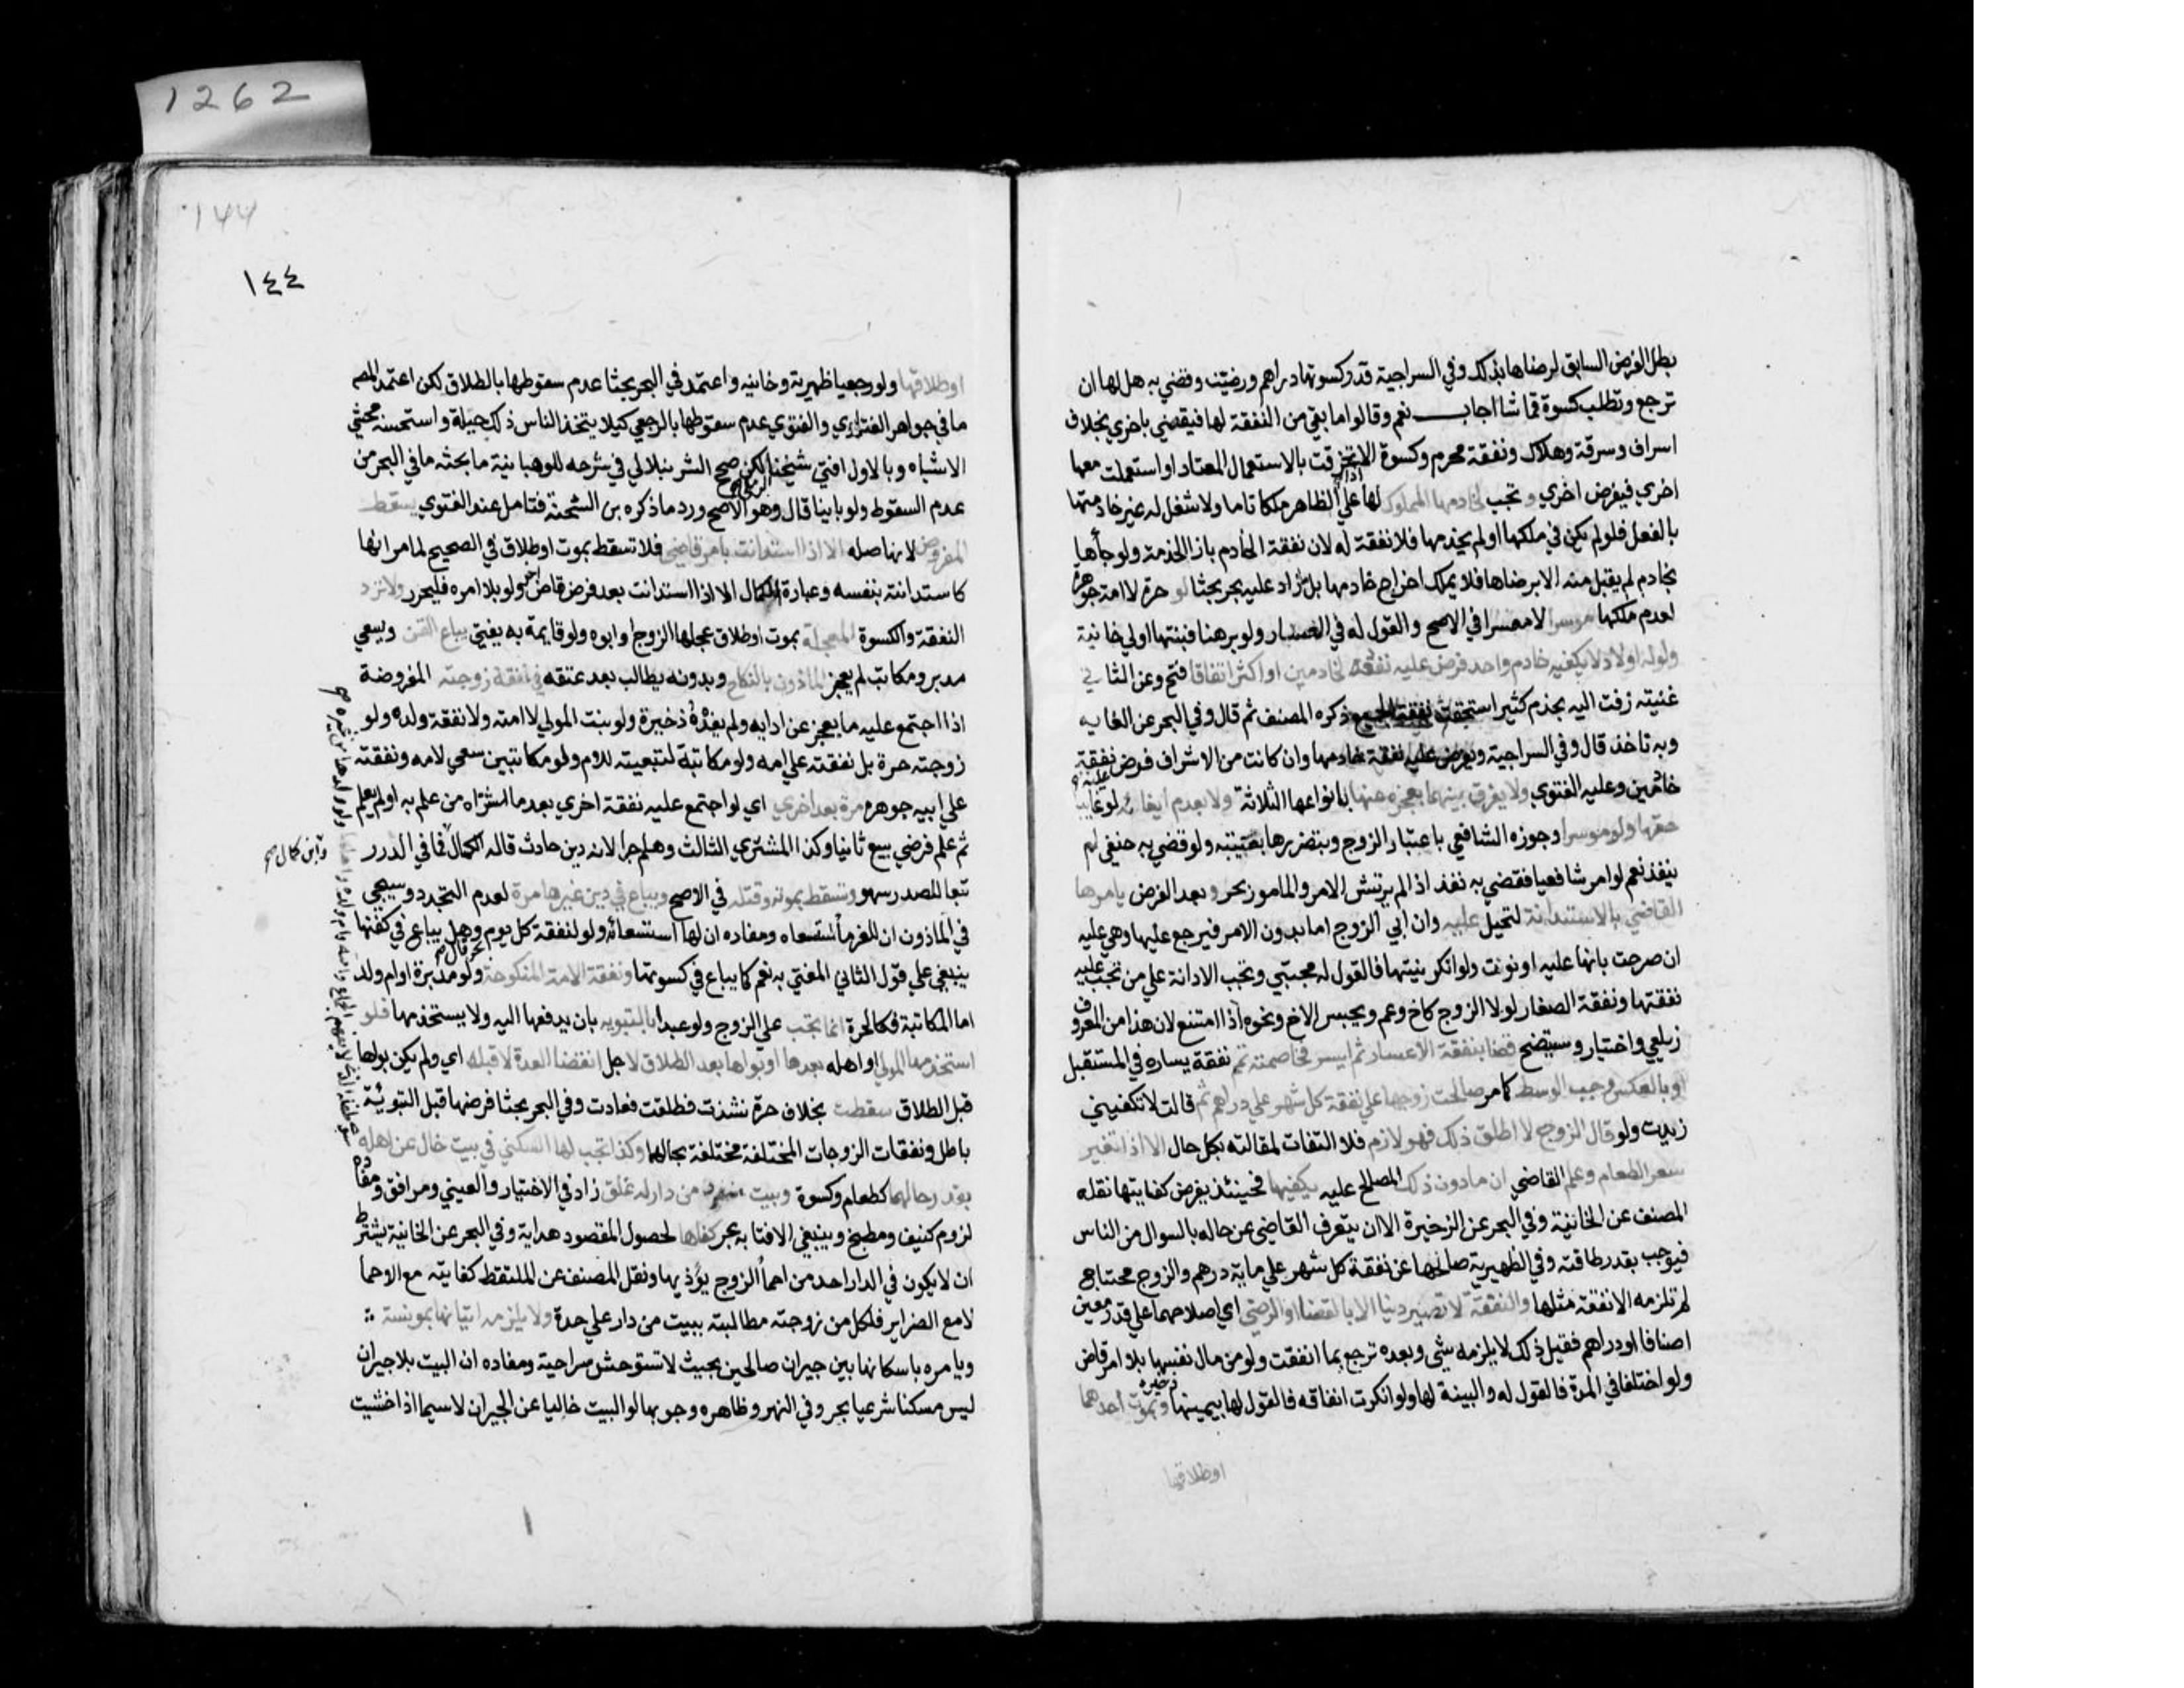 بطل الفرض السابق لرضاها بذلك وفي السراجية قدر كسوتها دراهم ورضيت وقضي به هل لها ان
ترجع وتطلب كسوة قماشا اجاب نعم وقالوا ما بقي من النفقة لها فيقضي باخري بخلاف
اسراف وسرقة وهلاك ونفقة محرم وكسوة الا اذا تخرقت بالاستعمال المعتاد او استعملت معها
اخري فيفرض اخري وتجب لخادمها المملوك لها علي الظاهر ملكا تاما ولا شغل له غير خدمتها
بالفعل فلو لم يكن في ملكها او لم يخدمها فلا نفقة له لان نفقة الخادم بازا الخدمة ولو جأها
بخادم لم يقبل منه الا برضاها فلا يملك اخراج خادمها بل ما زاد عليه بحر بحثا لو حرة لا امة جوهرة
لعدم ملكها موسرا لا معسرا في الاصح والقول له في العسار ولو برهنا فبينتها اولي خانية
ولو له اولاد لا يكفيه خادم واحد فرض عليه نفقة لخادمين او اكثر اتفاقا فتح وعن الثاني
غنية زفت اليه بخدم كثير استحقت نفقة الجميع ذكره المصنف ثم قال وفي البحر عن الغاية
وبه ناخذ قال وفي السراجية ويفرض عليه نفقة خادمها وان كانت من الاشراف فرض نفقة
خادمين وعليه الفتوي ولا يفرق بينهما بعجزه عنها بانواعها الثلاثة ولا بعدم ايفائه لو غايبا
حقها ولو موسرا وجوزه الشافعي باعسار الزوج وبتضررها بغيبته ولو قضي به حنفي لم
ينفذ نعم لو امر شافعيا فقضي به نفذ اذا لم يرتش الامر والمامور بحر وبعد الفرض يامرها
القاضي بالاستدانة لتحيل عليه وان ابي الزوج اما بدون الامر فيرجع عليها وهي عليه
ان صرحت بانها عليه او نوت ولو انكر نيتها فالقول له مجتبي وتجب الادانة علي من تجب عليه
نفقتها ونفقة الصغار لولا الزوج كاخ وعم ويحبس الاخ ونحوه اذا امتنع لان هذا من المعروف
زيلعي واختيار وسيتضح قضا بنفقة الاعسار ثم ايسر فخاصمته تمم نفقة يساره في المستقبل
او بالعكس وجب الوسط كما مر صالحت زوجها علي نفقة كل شهر علي دراهم ثم قالت لا تكفيني
زيدت ولو قال الزوج لا اطلق ذلك فهو لازم فلا التفات لمقالته بكل حال الا اذا تغير
سعر الطعام وعلم القاضي ان ما دون ذلك المصالح عليه يكفيها فحينئذ يفرض كفايتها نقله
المصنف عن الخانية وفي البحر عن الذخيرة الا ان يتعرف القاضي عن حاله بالسوال من الناس
فيوجب بقدر طاقته وفي الظهيرية صالحها عن نفقة كل شهر علي ماية درهم والزوج محتاج
لم تلزمه الا نفقة مثلها والنفقة لا تصير دينا الا بالقضا او الرضي اي اصلاحهما علي قدر معين
اصنافا او دراهم فقبل ذلك لا يلزمه شي وبعده ترجع بما انفقت ولو من مال نفسها بلا امر قاض
ولو اختلفا في المدة فالقول له والبينة لها ولو انكرت انفاقه فالقول لها بيمينها ذخيرة وبموت احدهما
او طلاقها
١٤٤
او طلاقها ولو رجعيا ظهيرية وخانية واعتمد في البحر بحثا عدم سقوطها بالطلاق لكن اعتمد المصـ
ما في جواهر الفتاوي والفتوي عدم سقوطها بالرجعي كيلا يتخذ الناس ذلك حيلة واستحسنه محشي
الاشباه وبالاول افتي شيخنا الرملي لكن صحح الشرنبلالي في شرحه للوهبانية ما بحثه ما في البحر من
عدم السقوط ولو باينا قال وهو الاصح ورد ما ذكره بن الشحنة فتامل عند الفتوي يسقط
المفروض لانها صله الا اذا استدانت بامر قاضي فلا تسقط بموت او طلاق في الصحيح لما مر انها
كاستدانته بنفسه وعبارة الكمال الا اذا استدانت بعد فرض قاض اخر ولو بلا امره فليحرر ولا ترد
النفقة والكسوة المعجلة بموت او طلاق عجلها الزوج او ابوه ولو قايمة به يفتي يباع القن ويسعي
مدبر ومكاتب لم يعجز الماذون بالنكاح وبدونه يطالب بعد عتقه في نفقة زوجته المفروضة
اذا اجتمع عليه ما يعجز عن ادايه ولم يفده ذخيرة ولو بنت المولي لا امته ولا نفقة ولده ولو
زوجته حرة بل نفقته علي امه ولو مكاتبة لتبعيته للام ولو مكاتبين سعي لامه ونفقته
علي ابيه جوهرة مرة بعد اخري اي لو اجتمع عليه نفقة اخري بعد ما اشتراه من علم به او لم يعلم
ثم علم فرضي بيع ثانيا وكذا المشتري الثالث وهلم جرا لانه دين حادث قاله الكمال فما في الدرر
وابن كمال صح
تبعا للصدر سهو وتسقط بموته وقتله في الاصح ويباع في دين غيرها مرة لعدم التجدد وسيجي
في الماذون ان للغرمأ استسعاه ومفاده ان لها استسعائه ولو لنفقة كل يوم بحر قال وهل يباع في كفنها
ينبغي علي قول الثاني المفتي به نعم كما يباع في كسوتها ونفقة الامة المنكوحة ولو مدبرة او ام ولد
اما المكاتبة فكالحرة انما تجب علي الزوج ولو عبدا بالتبويه بان يدفعها اليه ولا يستخدمها فلو
استخدمها المولي او اهله بعدها او بواها بعد الطلاق لاجل انقضا العدة لا قبله اي ولم يكن بواها
قبل الطلاق سقطت بخلاف حرة نشزت فطلقت فعادت وفي البحر بحثا فرضها قبل التبوئة
باطل ونفقات الزوجات المختلفة مختلفة بحالهما وكذا تجب لها السكني في بيت خال عن اهله
بقدر حالهما كطعام وكسوة وبيت منفرد من دار له غلق زاد في الاختيار والعيني ومرافق ومفاده
لزوم كنيف ومطبخ وينبغي الافتا به بحر كفاها لحصول المقصود هداية وفي البحر عن الخانية يشترط
ان لا يكون في الدار احد من احمأ الزوج يؤذيها ونقل المصنف عن الملتقط كفايته مع الاحمأ
لا مع الضراير فلكل من زوجته مطالبته ببيت من دار علي حدة ولا يلزمه اتيانها بمونسة
ويامره باسكانها بين جيران صالحين بحيث لا تستوحش سراجية ومفاده ان البيت بلا جيران
ليس مسكنا شرعيا بحر وفي النهر وظاهره وجوبها لو البيت خاليا عن الجيران لا سيما اذا خشيت
1262